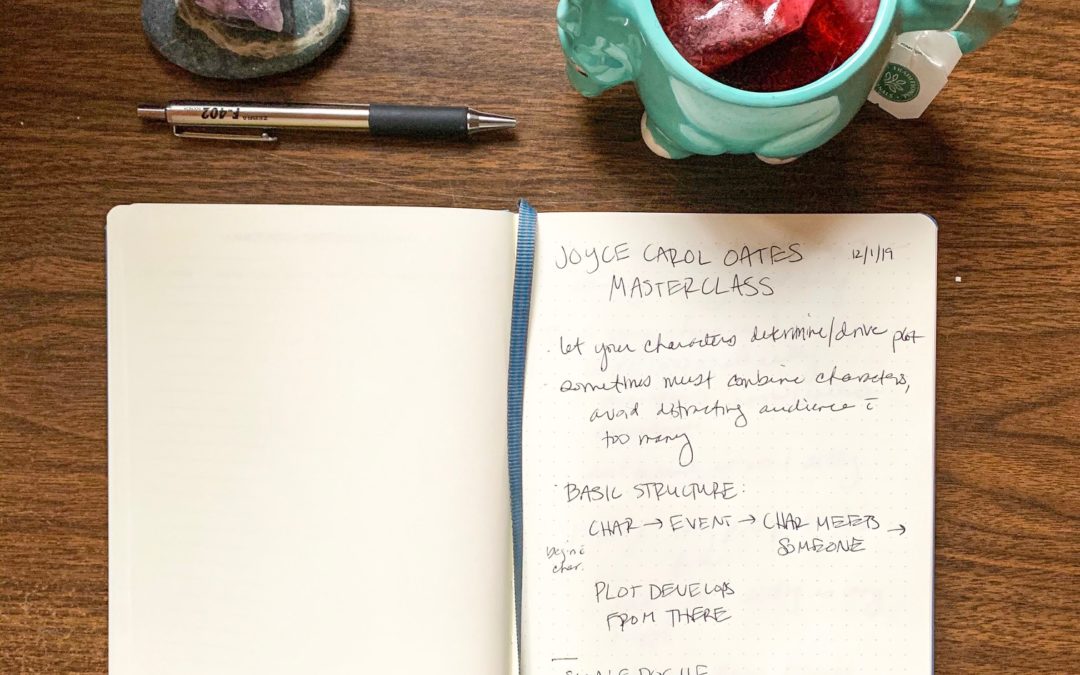 ZEBRA F-402
TRADITIONAL
JOYCE CAROL OATES 12/1/19
MASTERCLASS
· let your characters determine/drive plot
· sometimes must combine characters,
avoid distracting audience c̄
too many
· BASIC STRUCTURE:
CHAR → EVENT → CHAR MEETS →
SOMEONE
begin c̄
char.
PLOT DEVELOPS
FROM THERE